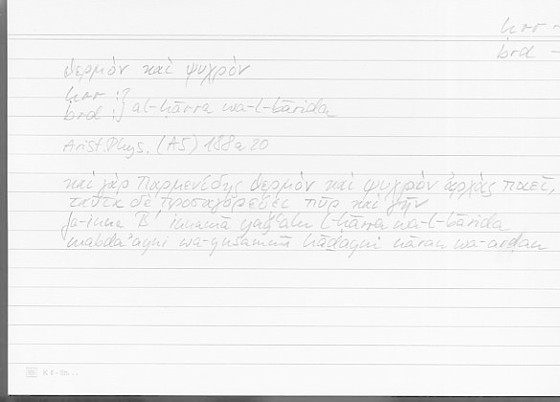 ḥrr
brd –
θερμὸν καὶ ψυχρόν
ḥrr :
brd : } al-ḥārra wa-l-bārida
Arist. Phys. (A5) 188a20
καὶ γὰρ Παρμενίδης θερμὸν καὶ ψυχρὸν ἀρχὰς ποιεῖ,
ταῦτα δὲ προσαγορεύει πῦρ καὶ γῆν
fa-inna B. innamā yaǧʿalu l-ḥārra wa-l-bārida
mabdaʾayni wa-yusammī hāḏayni nāran wa-arḍan